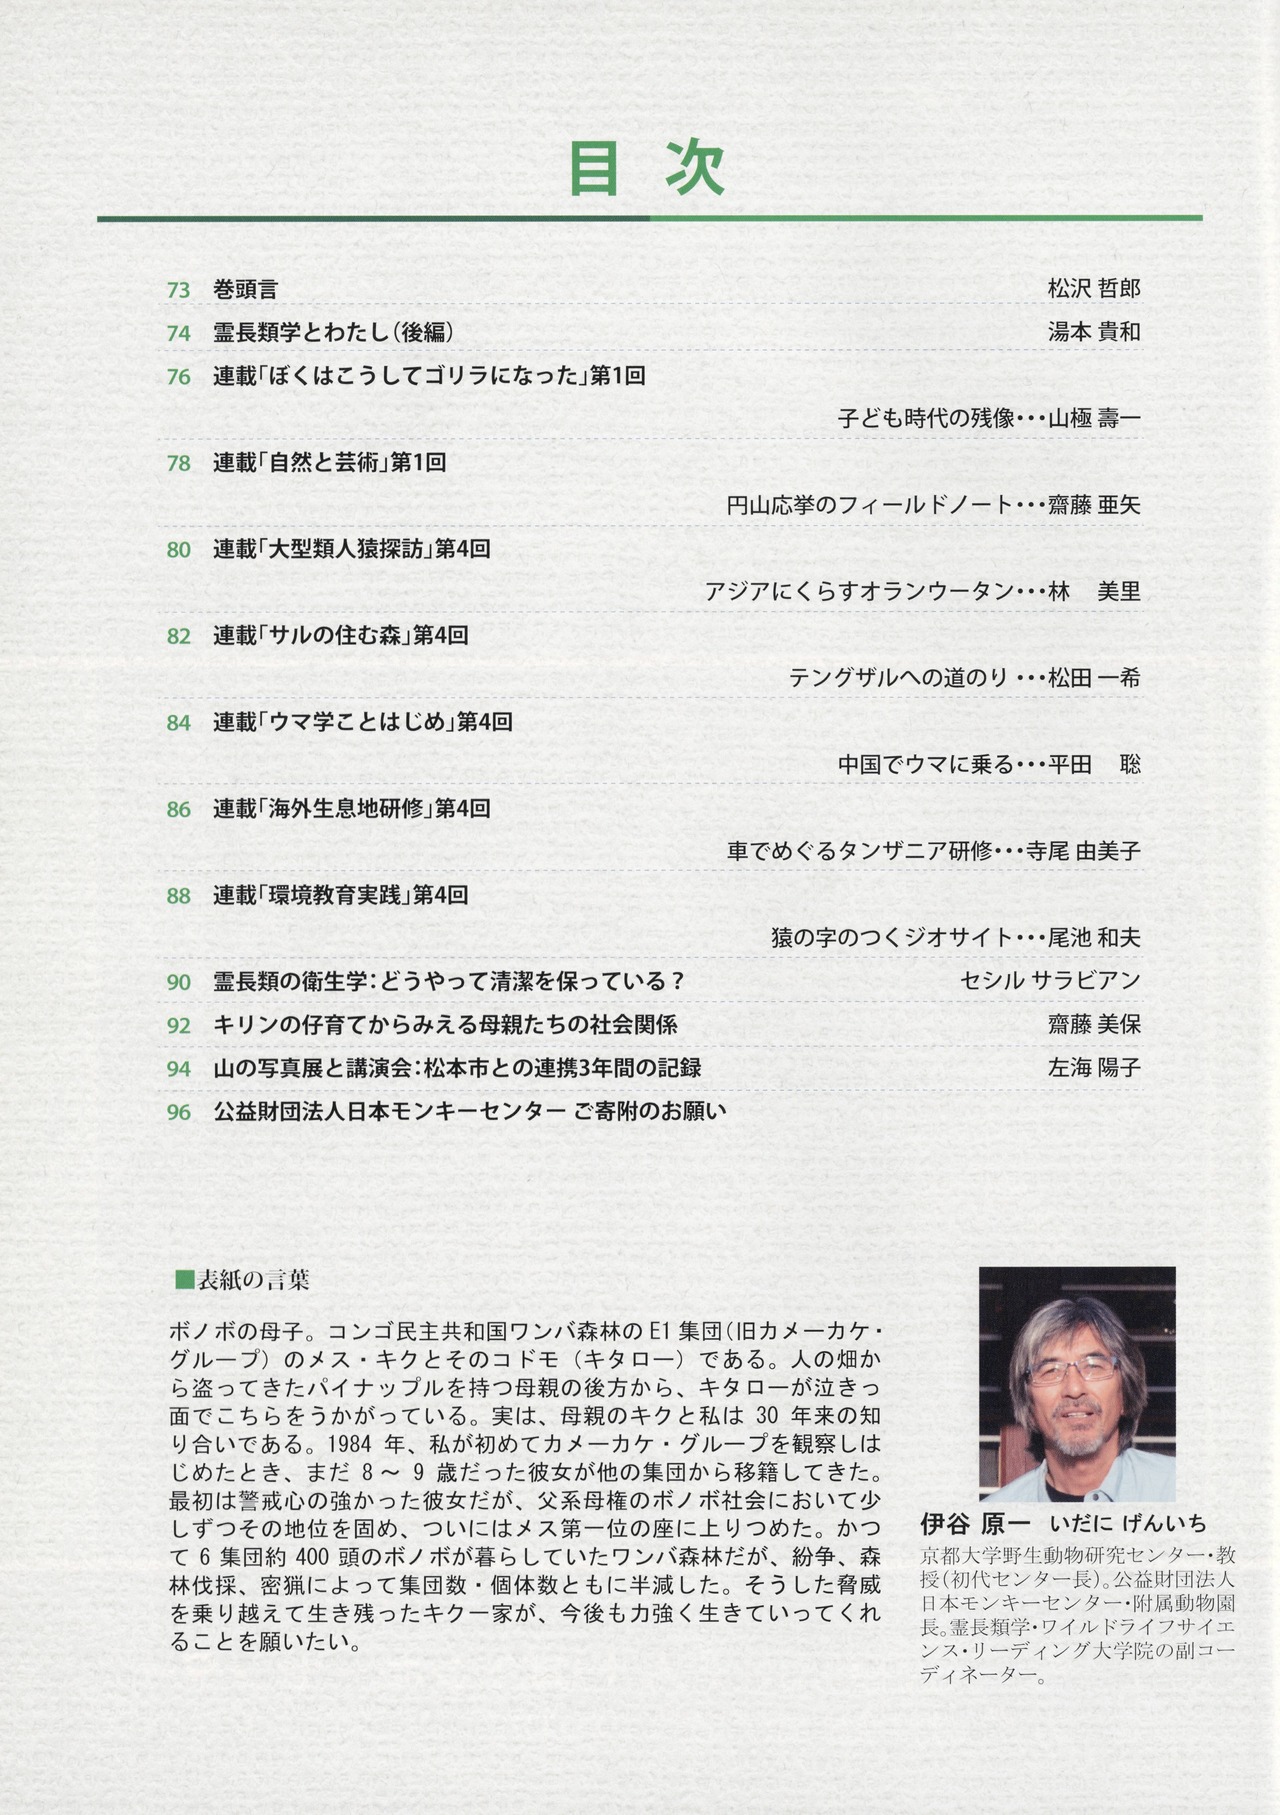 目 次
73 巻頭言 松沢 哲郎
74 霊長類学とわたし（後編） 湯本 貴和
76 連載「ぼくはこうしてゴリラになった」第1回
子ども時代の残像･･･山極 壽一
78 連載「自然と芸術」第1回
円山応挙のフィールドノート･･･齋藤 亜矢
80 連載「大型類人猿探訪」第4回
アジアにくらすオランウータン･･･林　美里
82 連載「サルの住む森」第4回
テングザルへの道のり ･･･松田 一希
84 連載「ウマ学ことはじめ」第4回
中国でウマに乗る･･･平田　聡
86 連載「海外生息地研修」第4回
車でめぐるタンザニア研修･･･寺尾 由美子
88 連載「環境教育実践」第4回
猿の字のつくジオサイト･･･尾池 和夫
90 霊長類の衛生学：どうやって清潔を保っている？ セシル サラビアン
92 キリンの仔育てからみえる母親たちの社会関係 齋藤 美保
94 山の写真展と講演会：松本市との連携3年間の記録 左海 陽子
96 公益財団法人日本モンキーセンター ご寄附のお願い
■表紙の言葉
ボノボの母子。コンゴ民主共和国ワンバ森林の E1 集団（旧カメーカケ・
グループ）のメス・キクとそのコドモ（キタロー）である。人の畑か
ら盗ってきたパイナップルを持つ母親の後方から、キタローが泣きっ
面でこちらをうかがっている。実は、母親のキクと私は 30 年来の知
り合いである。1984 年、私が初めてカメーカケ・グループを観察しは
じめたとき、まだ 8～ 9 歳だった彼女が他の集団から移籍してきた。
最初は警戒心の強かった彼女だが、父系母権のボノボ社会において少
しずつその地位を固め、ついにはメス第一位の座に上りつめた。かつ
て 6 集団約 400 頭のボノボが暮らしていたワンバ森林だが、紛争、森
林伐採、密猟によって集団数・個体数ともに半減した。そうした脅威
を乗り越えて生き残ったキク一家が、今後も力強く生きていってくれ
ることを願いたい。
伊谷 原一 いだに げんいち
京都大学野生動物研究センター・教
授（初代センター長）。公益財団法人
日本モンキーセンター・附属動物園
長。霊長類学・ワイルドライフサイエ
ンス・リーディング大学院の副コー
ディネーター。